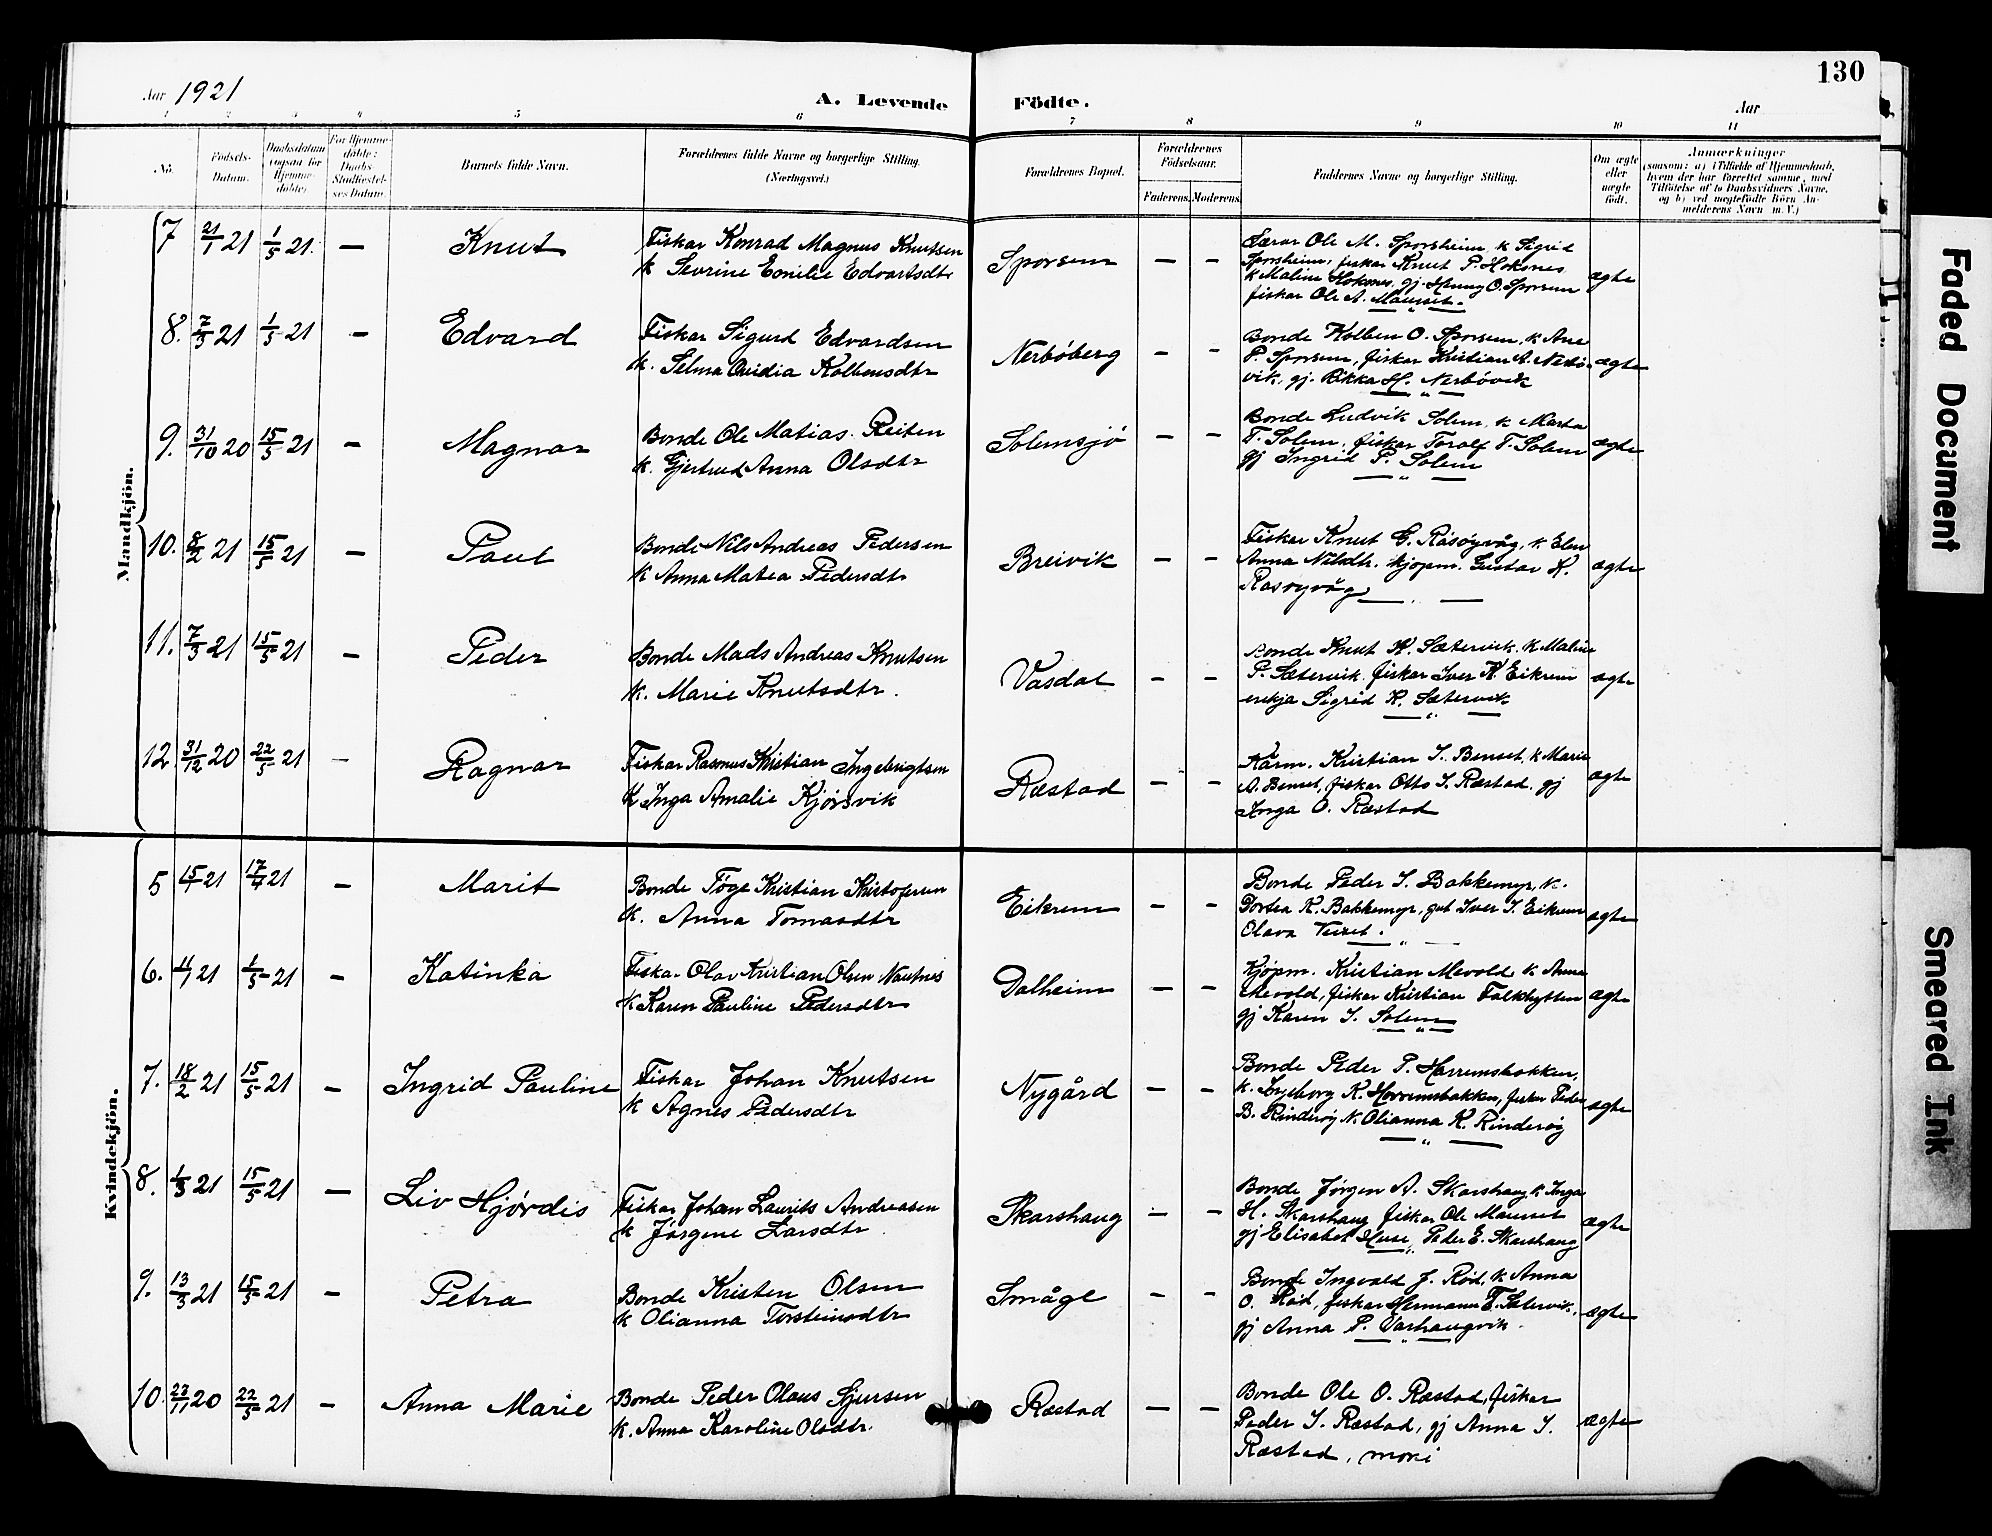 130
Aar 1921
A. Levende Födte.
Aar
1 2 3 4 5 6 7 8 9 10 11
No.
Födsels-Datum.
Daabsdatum (ogsaa for Hjemme-döbte)
For Hjemme-döbte: Daabs-Stadfæstel-ses Datum.
Barnets fulde Navn.
Forældrenes fulde Navne og borgerlige Stilling.
(Næringsvei.)
Forældrenes Bopæl.
Forældrenes Födselsaar.
Faderens. Moderens.
Faddernes Navne og borgerlige Stilling.
Om ægte eller uægte födt.
Anmærkninger
(saasom: a) i Tilfælde af Hjemmedaab,
hvem der har forrettet samme, med
Tilföielse af to Daabsvidners Navne,
og b) ved uægtefödte Börn An-
melderens Navn m. V.)
Mandkjön.
7 21/1 21 1/5 21. — Knut
Fiskar Konrad Magnus Knutsen
k Sevrine Emilie Edvartsdtr
Sporsem — —
Lærar Ole M. Sporsheim, k Sigrid
Sporsheim, fiskar Knut P. Hoksnes
k Maline Hoksnes, gj. O. Sporsem
fiskar Ole A. Mauset.
ægte
8. 7/3 21 1/5 21 — Edvard
Fiskar Sigurd Edvardsen
k. Selma Ovidia Kolbensdtr
Nerböberg — —
Bonde Kolben O. Sporsem, k Ane
P. Sporsem, fiskar Kristian A. Nerbö-
vik, gj. Rikka H. Nerbövik
ægte
9. 31/10 20 15/5 21 — Magnar
Bonde Ole Matias Reiten
k. Gjertrud Anna Olsdtr
Solemsjø — —
Bonde Ludvik Solem, k Marta
T. Solem, fiskar Toralf T. Solem
gj Ingrid P. Solem
ægte
10. 8/2 21 15/5 21 — Paul
Bonde Nils Andreas Pedersen
k Anna Matea Pedersdtr
Breivik — —
Fiskar Knut G. Råsöyvåg, k. Elen
Anna Nilsdtr. kjopm. Gustav K.
Rasoyvåg
ægte
11. 7/3 21 15/5 21 — Peder
Bonde Mads Andreas Knutsen
k. Marie Knutsdtr.
Vasdal — —
Bonde Knut K. Sætervik, k Maline
P. Sætervik fiskar Iver K Eikrem
enkja Sigrid K. Sætervik
ægte
12 31/12 20 22/5 21 — Ragnar
Fiskar Rasmus Kristian Ingebrigtsen
k Inga Amalie Kjörsvik
Ræstad — —
Kårm. Kristian J. Benset, k Marie
A. Benset, fiskar Otto J. Ræstad. gj
Inga O. Ræstad
ægte
Kvindekjön.
5 15/1 21 17/4 21 — Marit
Bonde Töge Kristian Kristofersen
k. Anna Tomasdtr
Eikrem — —
Bonde Peder J. Bakkemyr, k.
K. Bakkemyr, gut Iver J. Eikrem
Olava
ægte
6. 21 1/5 21 — Katinka
Fiskar Olav Kristian Olsen Nautnes
k Karen Pauline Pedersdtr
Dalheim — —
Kjöpm. Kristian Mevold k Anna
Mevold, fiskar Kristian Falkhytten
gj Karen J. Solem
ægte
7. 18/2 21 15/5 21 — Ingrid Pauline
Fiskar Johan Knutsen
k Agnes Pedersdtr
Nygård — —
Bonde Peder P. Harremsbakken,
k. Ingeborg K. Horremsbakken, fiskar Peder
B. Rinderöy k Olianna K. Rinderöy
ægte
8. 1/3 21 15/5 21 — Liv Hjørdis
Fiskar Johan Laurits Andreasen
k Jørgine Larsdtr
Skarshaug — —
Bonde Jørgen A. Skarshaug k Inga
H. Skarshaug fiskar Ole Mauset
gj Elisabet Huse, Peder E. Skarshaug
ægte
9. 13/3 21 15/5 21 — Petra
Bonde Kristen Olsen
k Olianna Torsteinsdtr
Småge — —
Bonde Ingvald J. Röd, k Anna
O. Röd, fiskar Hermann E. Setervik,
gj Anna P. Varhaugvik.
ægte
10. 22/11 20 22/5 21 — Anna Marie
Bonde Peder Olaus Sjursen
k. Anna Karoline Olsdtr.
Ræstad — —
Bonde Ole O. Ræstad, fiskar
Peder J. Ræstad, gj Anna J.
Ræstad, mori
ægte
Faded Document
Smeared Ink